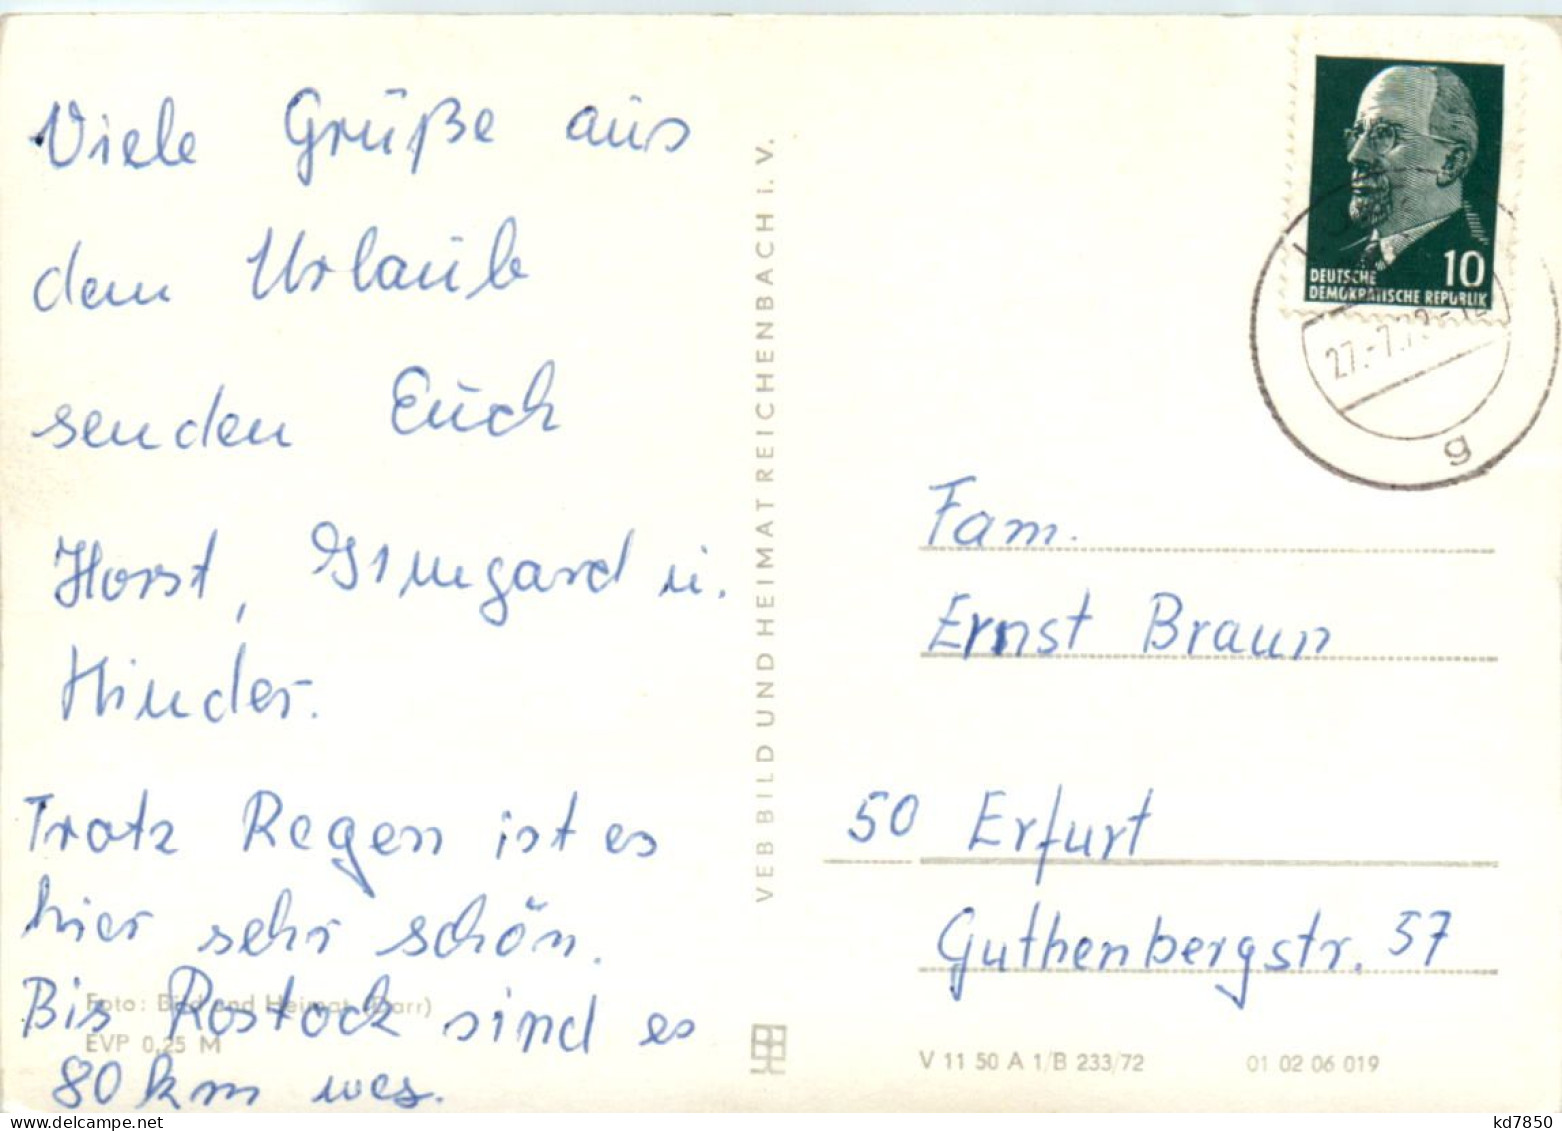 Viele Grüße aus
dem Urlaub
senden Euch
Horst, Irmgard u.
Kinder.
Trotz Regen ist es
hier sehr schön.
Bis Rostock sind es
80 km weg.
Foto: Bild und Heimat (Darr)
EVP 0,25 M
VEB BILD UND HEIMAT REICHENBACH i. V.
DEUTSCHE 10
DEMOKRATISCHE REPUBLIK
27.-7.72
g
Fam.
Ernst Braun
50 Erfurt
Guthenbergstr. 57
V 11 50 A 1/B 233/72 01 02 06 019
delcampe.net
kd7850